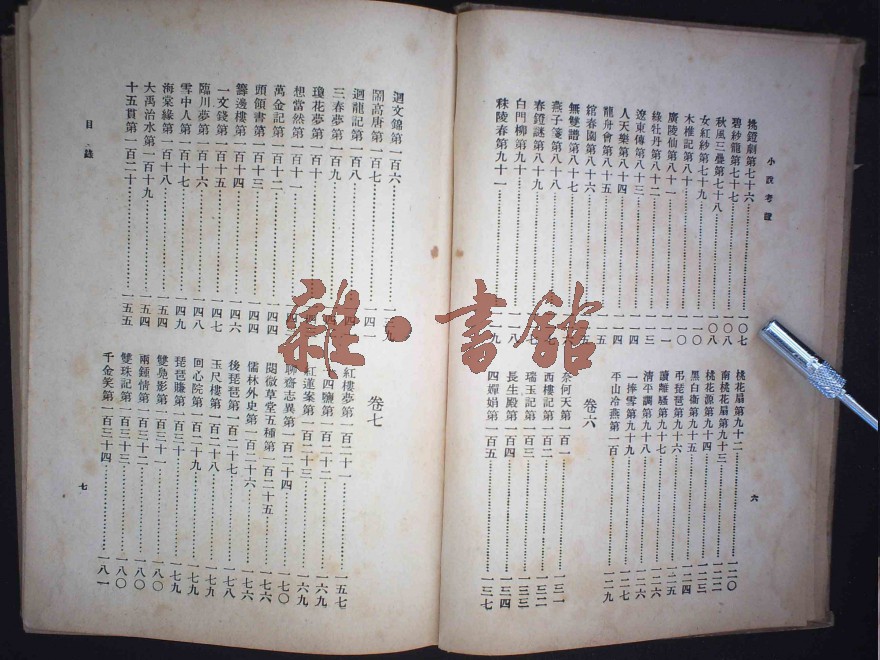 小說考證
挑燈劇第七十六……一〇七
碧紗籠第七十七……一〇八
秋風三疊第七十八……一〇八
女紅紗第七十九……一一〇
木椎記第八十……一一〇
廣陵仙第八十一……
綠牡丹第八十二……一一三
遼東傳第八十三……一一四
人天樂第八十四……一一四
龍舟會第八十五……一一五
綰春園第八十六……
無雙譜第八十七……
燕子箋第八十八……一一七
春鐙謎第八十九……一一七
白門柳第九十……一一八
秣陵春第九十一……一一九
桃花扇第九十二……一二〇
南桃花扇第九十三……一二二
桃花源第九十四……一二二
黑白衛第九十五……一二三
弔琵琶第九十六……一二四
讀離騷第九十七……一二五
清平調第九十八……一二六
一捧雪第九十九……一二七
平山冷燕第一百……一二九
卷六
奈何天第一百一……一三一
西樓記第一百二……一三二
瑞玉記第一百三……一三三
長生殿第一百四……一三四
四嬋娟第一百五……一三七
六
迴文錦第一百六……
鬧高唐第一百七……一四一
迴龍記第一百八……
三春夢第一百九……
瓊花夢第一百十……
想當然第一百十一……
萬金記第一百十二……一四四
頭領書第一百十三……一四四
籌邊樓第一百十四……一四六
一文錢第一百十五……一四七
臨川夢第一百十六……一四八
雪中人第一百十七……一四九
海棠緣第一百十八……一五四
大禹治水第一百十九……一五四
十五貫第一百二十……一五五
卷七
紅樓夢第一百二十一……一五七
四鹽第一百二十二……一六九
紅蓮案第一百二十三……一六九
聊齋志異第一百二十四……一七〇
閱微草堂五種第一百二十五……一七六
儒林外史第一百二十六……一七六
後琵琶第一百二十七……一七八
玉尺樓第一百二十八……一七九
回心院第一百二十九……一七九
琵琶賺第一百三十……一七九
雙鳧影第一百三十一……一八〇
兩鍾情第一百三十二……一八〇
雙珠記第一百三十三……一八〇
千金笑第一百三十四……一八一
目錄
七
雜·書館